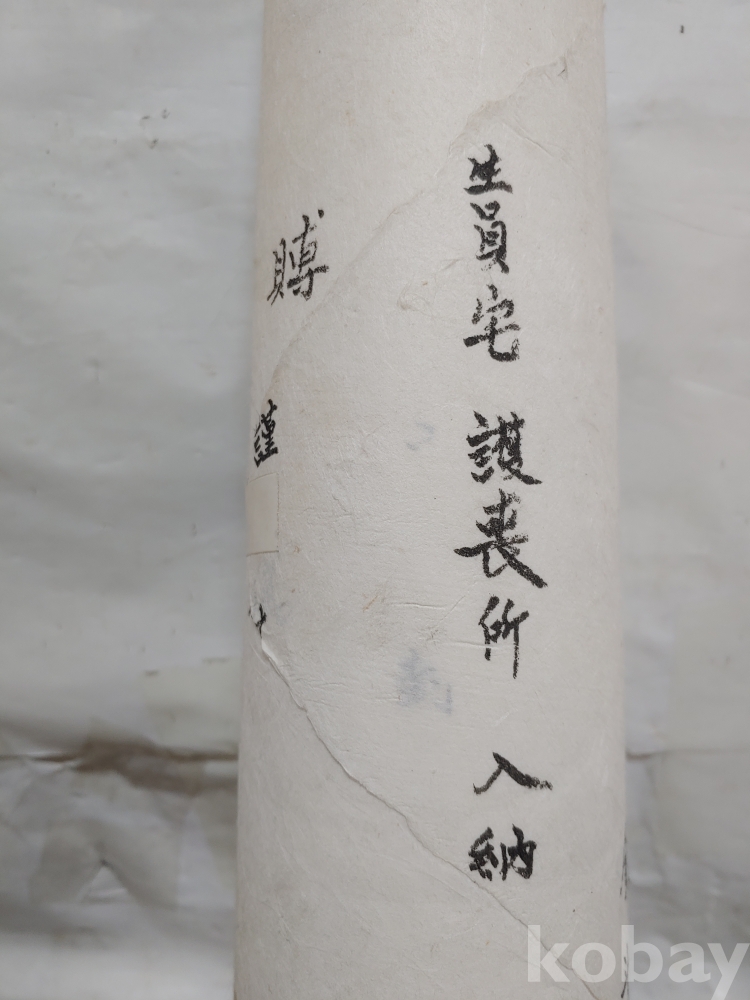 生員宅 護喪所 入納
賻
謹
kobay